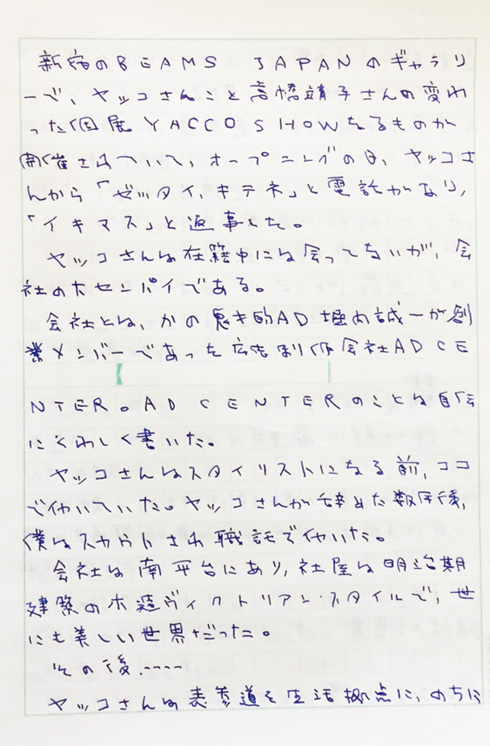 新宿のBEAMS JAPANのギャラリ
ーで、ヤッコさんこと高橋靖子さんの変わ
った個展YACCOSHOWなるものが
開催されていて、オープニングの日、ヤッコさ
んから「ゼッタイ、キテネ」と電話があり、
「イキマス」と返事した。
ヤッコさんは在籍中には会ってないが、会
社の大センパイである。
会社とは、かの鬼才的AD堀内誠一が創
業メンバーであった広告制作会社ADCE
NTER。AD CENTERのことは自伝
にくわしく書いた。
ヤッコさんはスタイリストになる前、ココ
で働いていた。ヤッコさんが辞めた数年後、
僕はスカウトされ職託で働いた。
会社は南平台にあり、社屋は明治期
建築の木造ヴィクトリアンスタイルで、世
にも美しい世界だった。
その後‥‥
ヤッコさんは表参道を生活拠点に、のちに